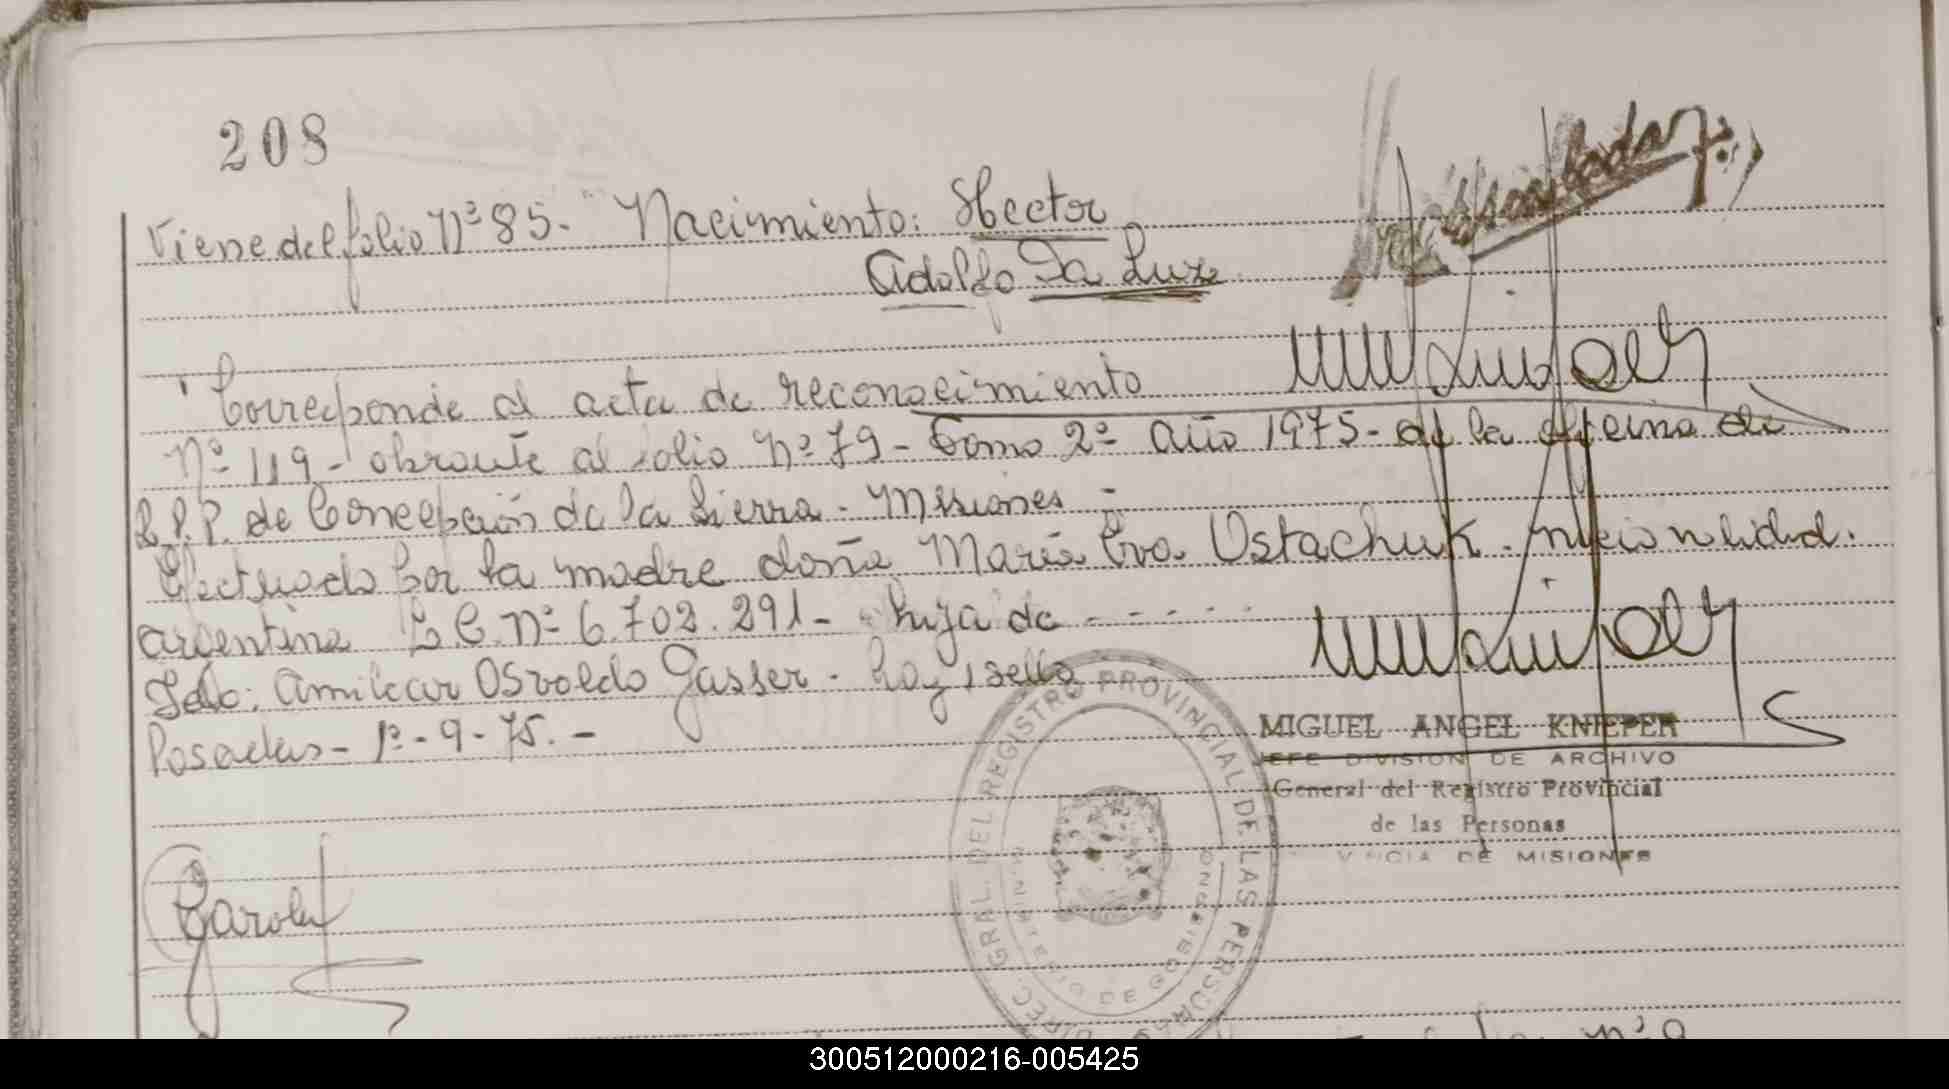 208
Viene del folio Nº 85.- Nacimiento: Hector
Adolfo Da Luz
Corresponde al acta de reconocimiento
Nº 119 - obrante al folio Nº 79 - Tomo 2º año 1975 - de la oficina de
R.P.P. de Concepción de la Sierra - Misiones -
Efectuado por la madre doña María Eva Ustachuk. nacionalidad.
argentina L.C. Nº 6.702.291 - hija de - - - - - -
Fdo: Amilcar Osvaldo Gasser - hay 1 sello
Posadas - 1º - 9 - 75. -
MIGUEL ANGEL KNIEPER
JEFE DIVISION DE ARCHIVO
General del Registro Provincial
de las Personas
VINCIA DE MISIONES
DIREC. GRAL. DEL REGISTRO PROVINCIAL DE LAS PERSONAS
MINISTERIO DE GOBIERNO
300512000216-005425